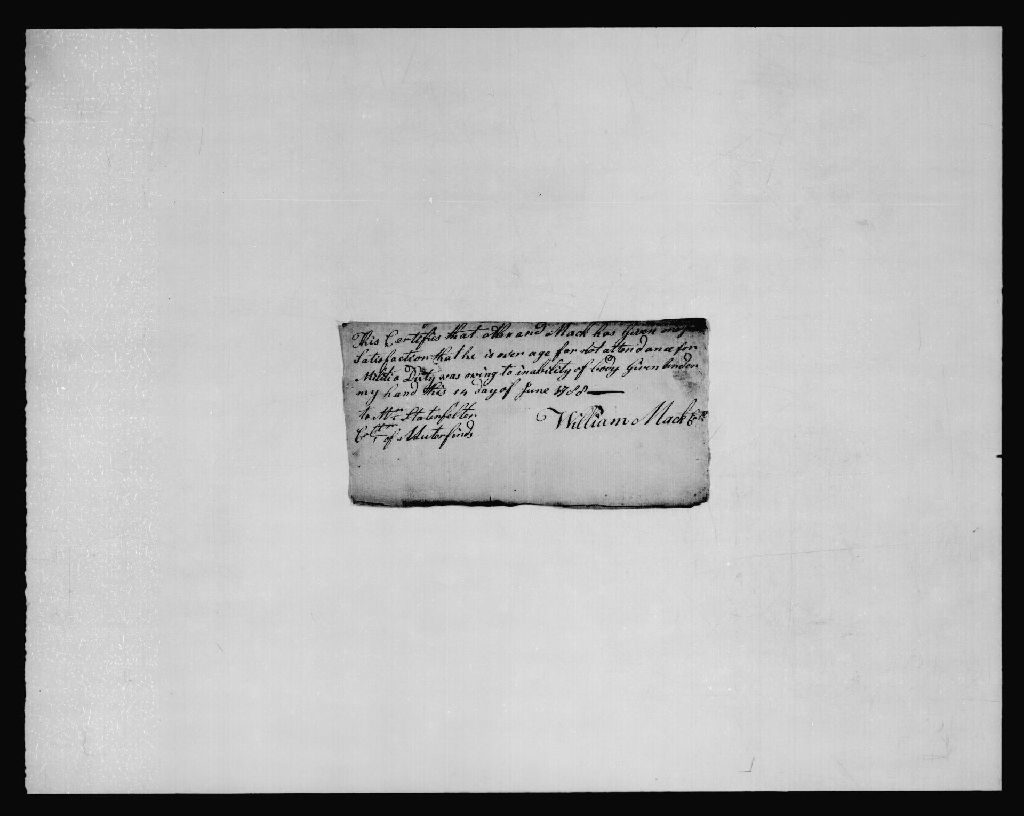 This Certifies that and Mack has Given me
Satisfaction that he is over age for not attendance for
Militia Duty was owing to inability of body Given under
my hand this 14 day of June 1788
to Mr. Statenfelter
of
William Mack